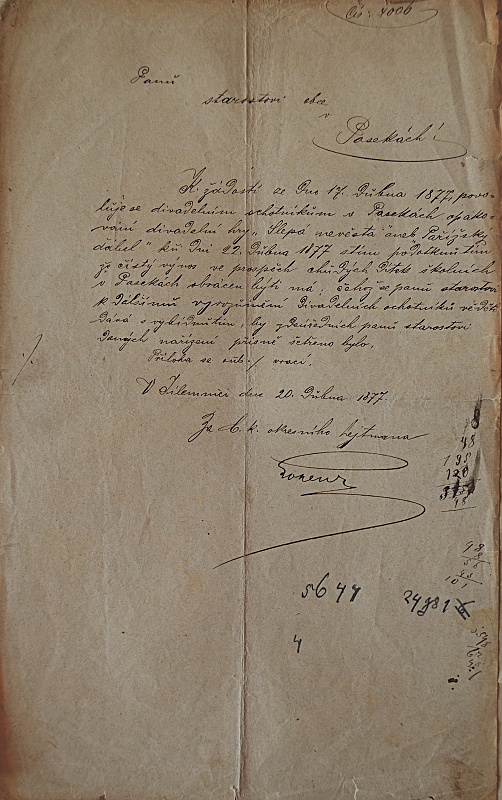 Čís. 4006
Panu
starostovi obce
v
Pasekách!
K žádosti ze dne 17. Dubna 1877, povo-
luje se divadelním ochotníkům v Pasekách opako-
vání divadelní hry „Slepá nevěsta aneb Pařížský
dábel" ku dni 22. Dubna 1877 s tím podotknutím
že čistý výnos ve prospěch chudých dítek školních
v Pasekách obrácen býti má, čehož se panu starostovi
k dalšímu vyrozumění divadelních ochotníků věděti
dává s vybídnutím, by zdeúředních panu starostovi
daných nařízení přísně šetřeno bylo.
Příloha se sub ·/. vrací.
V Jilemnici dne 20. Dubna 1877.
Za c. k. okresního hejtmana
Lorenz
48
198
120
98
5644
4